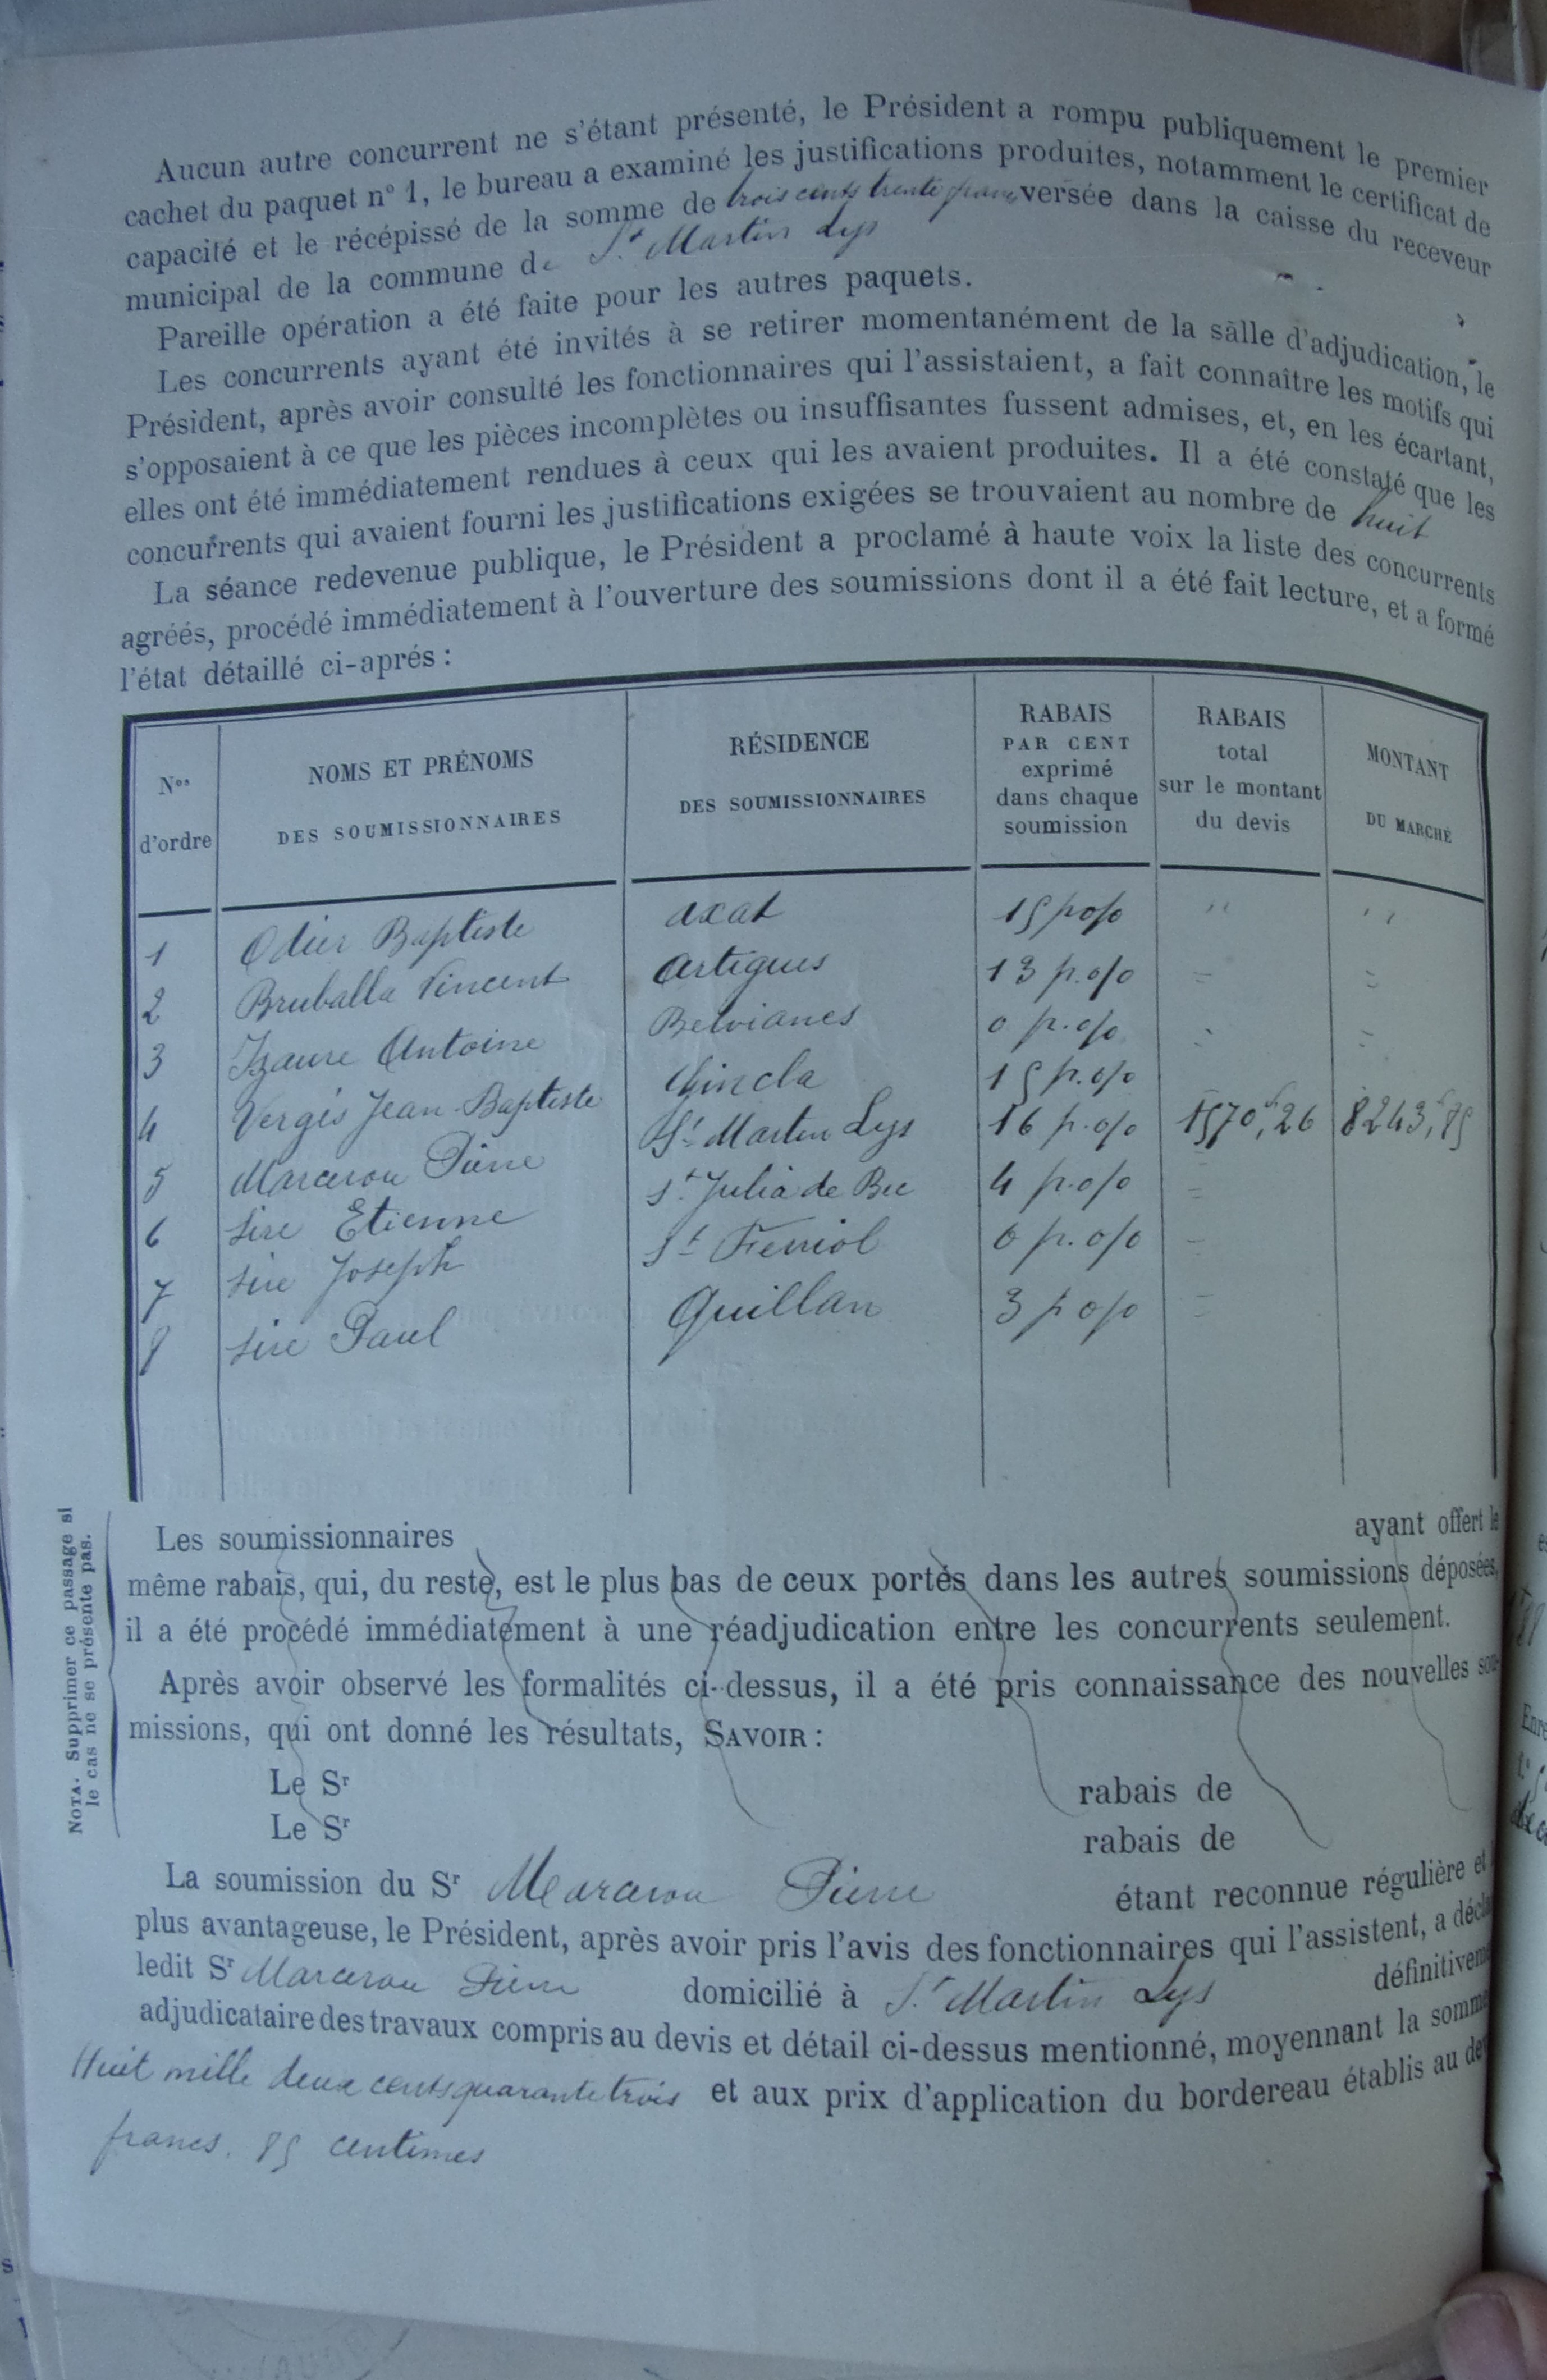 Aucun autre concurrent ne s'étant présenté, le Président a rompu publiquement le premier
cachet du paquet n° 1, le bureau a examiné les justifications produites, notamment le certificat de
capacité et le récépissé de la somme de trois cents trente francs versée dans la caisse du receveur
municipal de la commune de St Martin Lys
Pareille opération a été faite pour les autres paquets.
Les concurrents ayant été invités à se retirer momentanément de la salle d'adjudication, le
Président, après avoir consulté les fonctionnaires qui l'assistaient, a fait connaître les motifs qui
s'opposaient à ce que les pièces incomplètes ou insuffisantes fussent admises, et, en les écartant,
elles ont été immédiatement rendues à ceux qui les avaient produites. Il a été constaté que les
concurrents qui avaient fourni les justifications exigées se trouvaient au nombre de huit
La séance redevenue publique, le Président a proclamé à haute voix la liste des concurrents
agréés, procédé immédiatement à l'ouverture des soumissions dont il a été fait lecture, et a formé
l'état détaillé ci-aprés :
Nos d'ordre NOMS ET PRÉNOMS DES SOUMISSIONNAIRES RÉSIDENCE DES SOUMISSIONNAIRES RABAIS PAR CENT exprimé dans chaque soumission RABAIS total sur le montant du devis MONTANT DU MARCHÉ
1 Odier Baptiste axat 15 p o/o " "
2 Bruballa Vincent Artigues 13 p. o/o = =
3 Izaure Antoine Belvianes 0 p. o/o = =
4 Vergés Jean-Baptiste Gincla 15 p. o/o
5 Marcerou Pierre St Martin Lys 16 p. o/o 1570f,26 8243f,85
6 Sire Etienne St Julia de Bec 4 p. o/o =
7 Sire Joseph St Ferriol 6 p. o/o =
8 Sire Paul Quillan 3 p o/o =
NOTA. Supprimer ce passage si
le cas ne se présente pas.
Les soumissionnaires ayant offert le
même rabais, qui, du reste, est le plus bas de ceux portés dans les autres soumissions déposées,
il a été procédé immédiatement à une réadjudication entre les concurrents seulement.
Après avoir observé les formalités ci-dessus, il a été pris connaissance des nouvelles sou-
missions, qui ont donné les résultats, SAVOIR :
Le Sr rabais de
Le Sr rabais de
La soumission du Sr Marcerou Pierre étant reconnue régulière et
plus avantageuse, le Président, après avoir pris l'avis des fonctionnaires qui l'assistent, a décla
ledit Sr Marcerou Pierre domicilié à St Martin Lys définitiveme
adjudicataire des travaux compris au devis et détail ci-dessus mentionné, moyennant la somme
Huit mille deux cents quarante trois et aux prix d'application du bordereau établis au dev
francs. 85 centimes